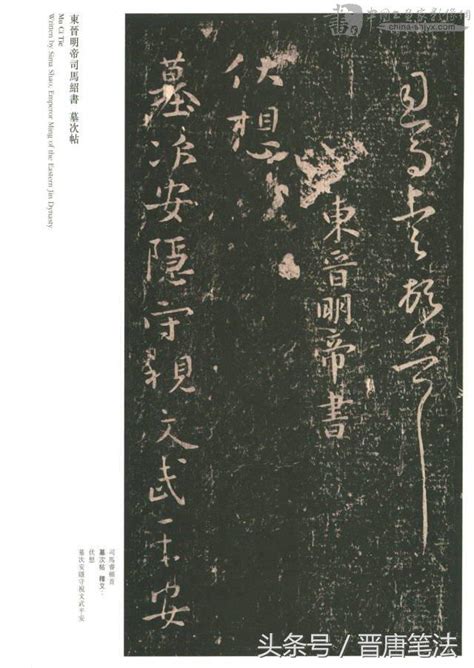 司馬睿頓首
東晉明帝書
伏想
墓次安隱守視文武平安
東晉明帝司馬紹書 墓次帖
Mu Ci Tie
Written by Sima Shao, Emperor Ming of the Eastern Jin Dynasty
司馬睿頓首
墓次帖 釋文：
伏想
墓次安隱守視文武平安
头条号／晋唐笔法